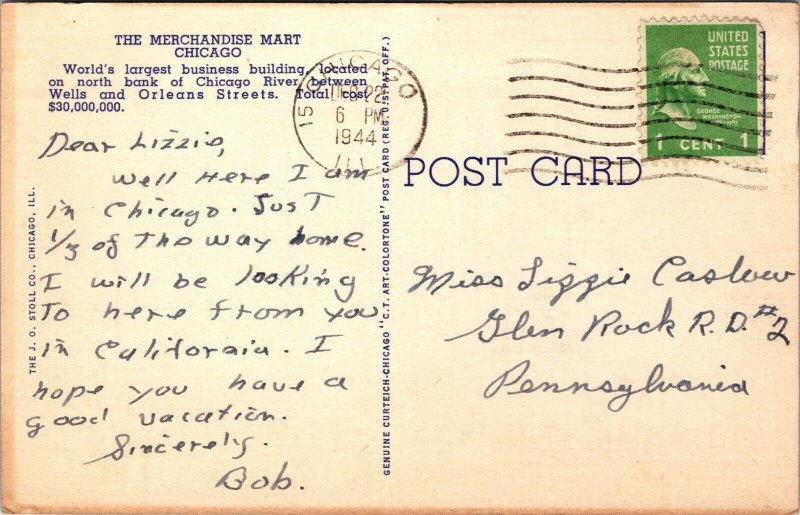 THE MERCHANDISE MART
CHICAGO
World's largest business building, located
on north bank of Chicago River, between
Wells and Orleans Streets. Total cost
$30,000,000.
Dear Lizzie,
Well Here I am
in Chicago. Just
1/3 of the way home.
I will be looking
To here from you
in California. I
hope you have a
good vacation.
Sincerely.
Bob.
THE J. O. STOLL CO., CHICAGO, ILL.
GENUINE CURTEICH-CHICAGO "C.T. ART-COLORTONE" POST CARD (REG. U.S. PAT. OFF.)
CHICAGO
15
22
6 PM
1944
ILL
UNITED
STATES
POSTAGE
GEORGE
WASHINGTON
1 CENT 1
POST CARD
Miss Lizzie
Glen Rock R.D. #2
Pennsylvania